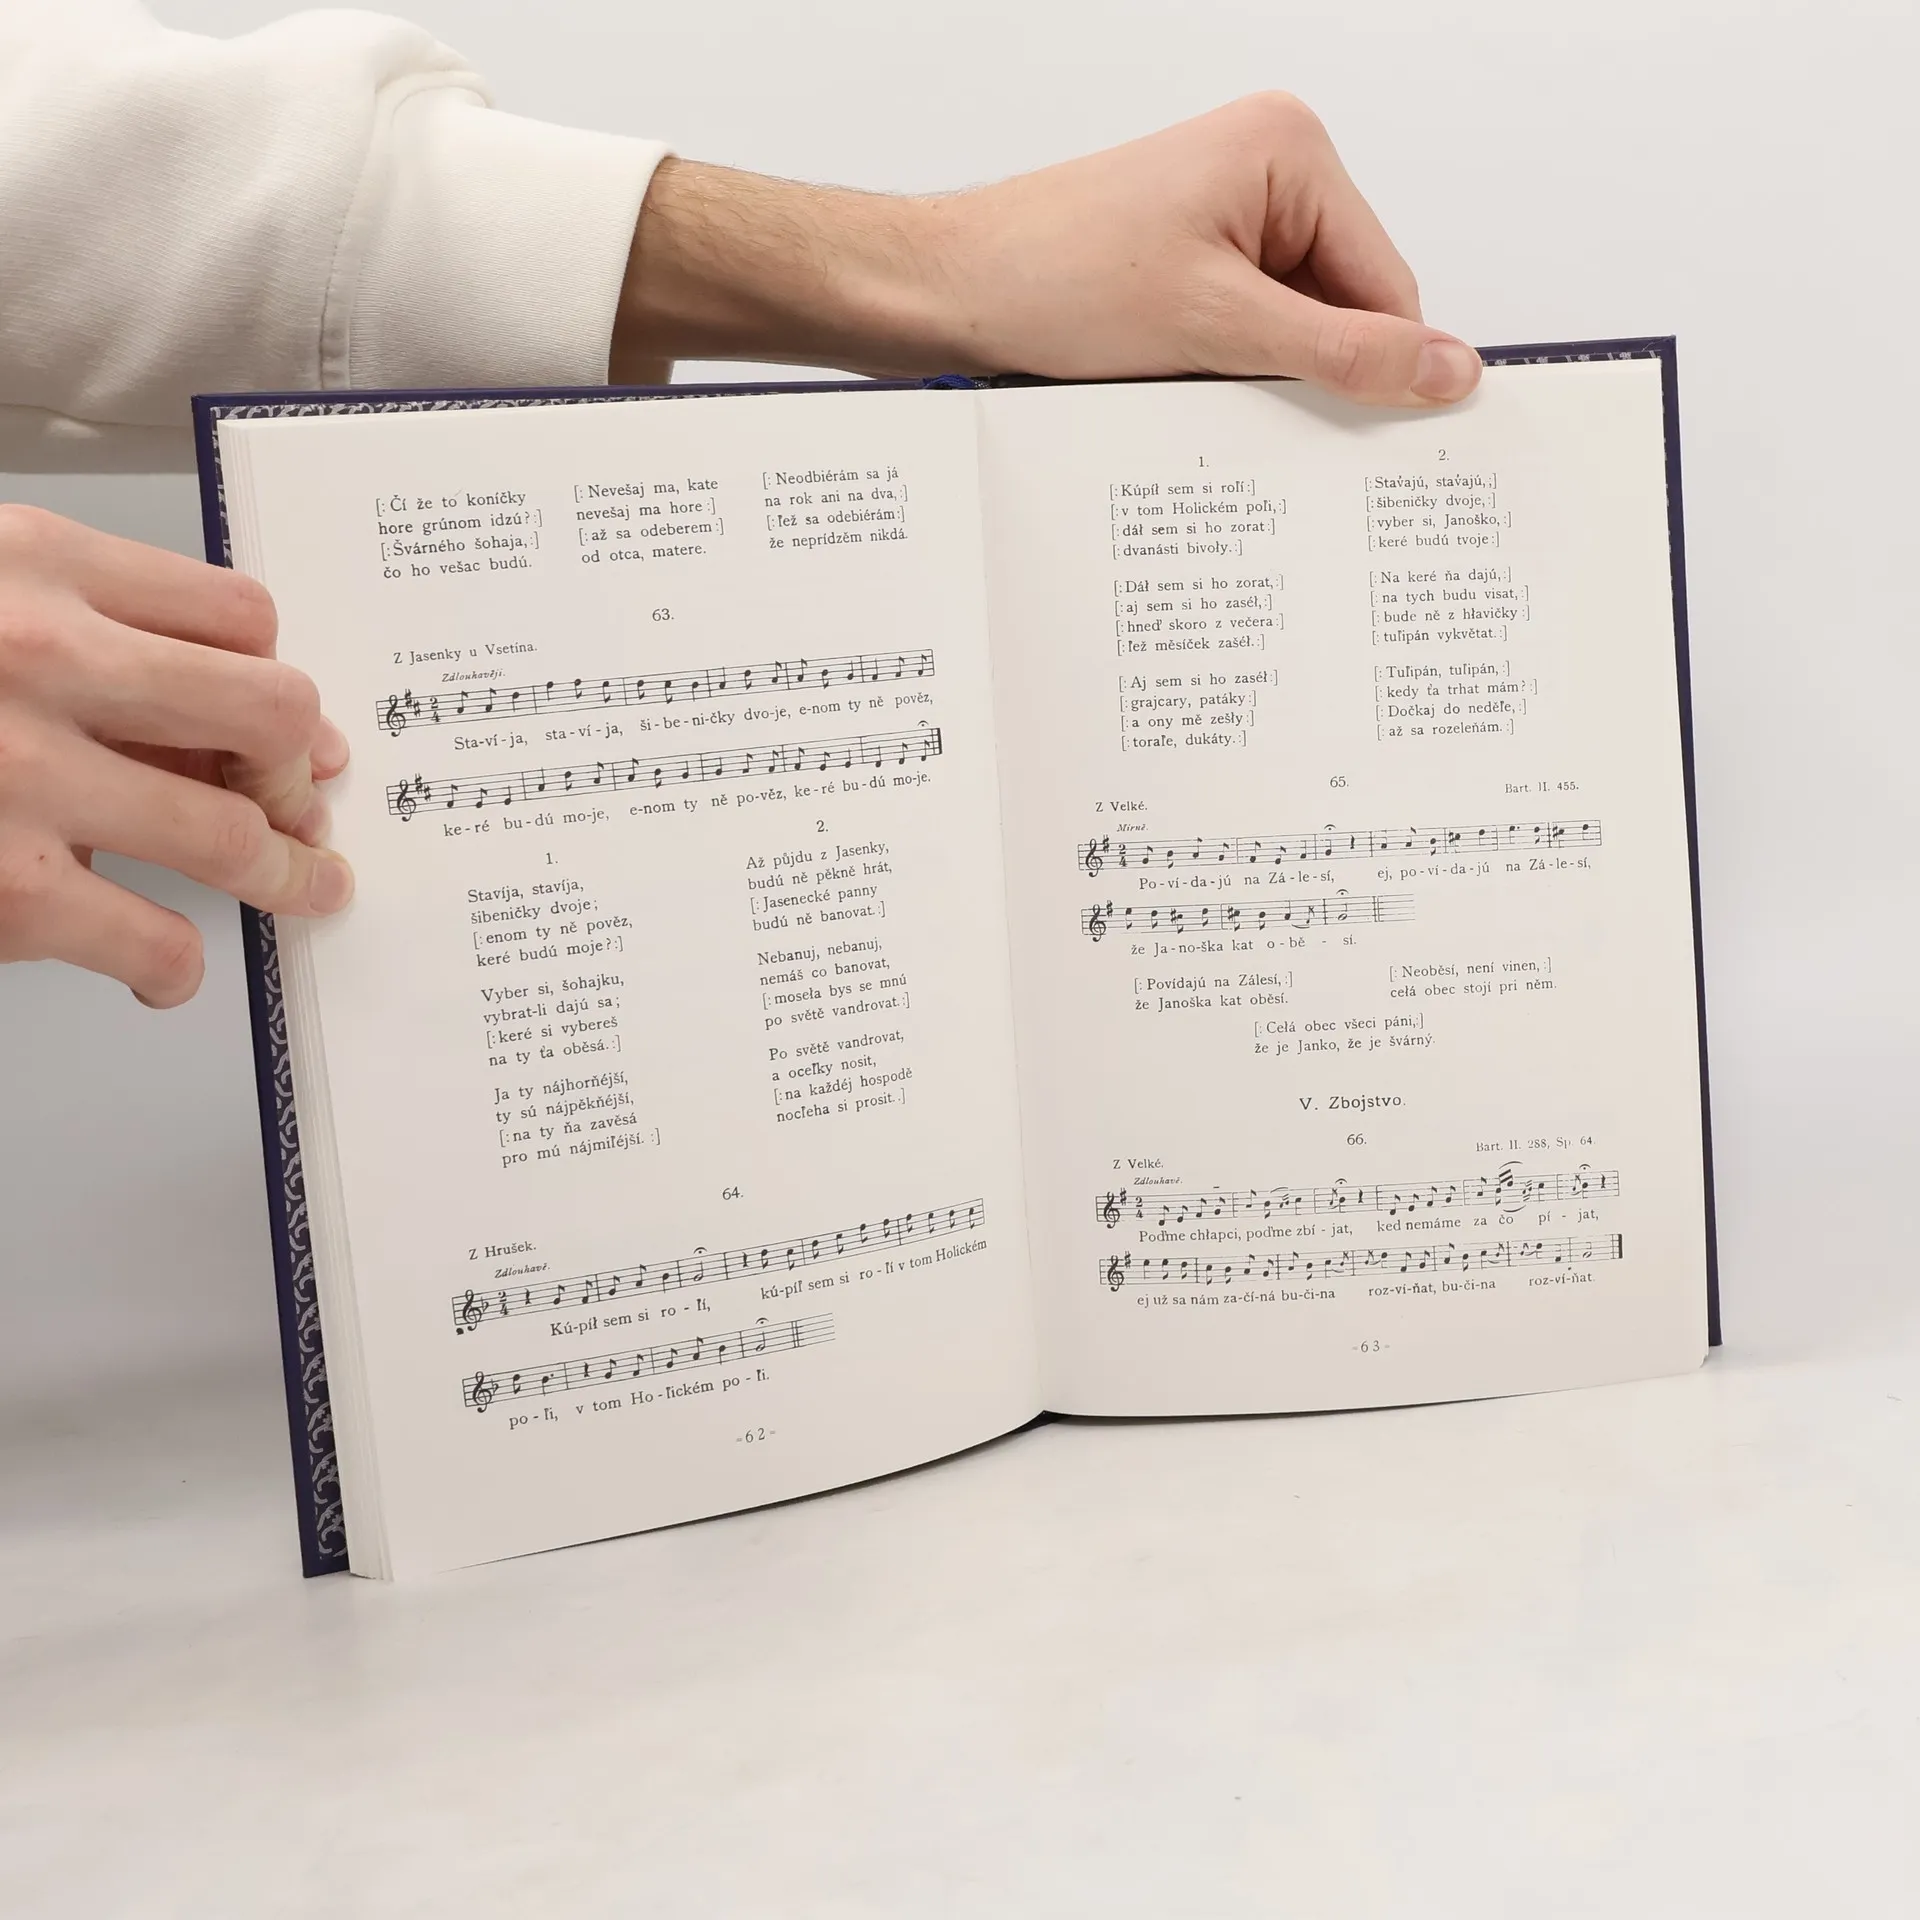 [: Čí že to koníčky
hore grúnom idzú? :]
[: Švárného šohaja, :]
čo ho vešac budú.
[: Nevešaj ma, kate
nevešaj ma hore :]
[: až sa odeberem :]
od otca, matere.
[: Neodbiérám sa já
na rok ani na dva, :]
[: ľež sa odebiérám :]
že neprídzěm nikdá.
63.
Z Jasenky u Vsetína.
Zdlouhavěji.
Sta-ví-ja, sta-ví-ja, ši-be-ni-čky dvo-je, e-nom ty ně pověz,
ke-ré bu-dú mo-je, e-nom ty ně po-věz, ke-ré bu-dú mo-je.
1.
Stavíja, stavíja,
šibeničky dvoje;
[: enom ty ně pověz,
keré budú moje? :]
Vyber si, šohajku,
vybrat-li dajú sa;
[: keré si vybereš
na ty ťa oběsá. :]
Ja ty nájhorňéjší,
ty sú nájpěkňéjší,
[: na ty ňa zavěsá
pro mú nájmiľéjší. :]
2.
Až půjdu z Jasenky,
budú ně pěkně hrát,
[: Jasenecké panny
budú ně banovat. :]
Nebanuj, nebanuj,
nemáš co banovat,
[: moseła bys se mnú
po světě vandrovat. :]
Po světě vandrovat,
a oceľky nosit,
[: na každéj hospodě
nocľeha si prosit. .]
64.
Z Hrušek.
Zdlouhavě.
Kú-pił sem si ro - ľí, kú-píľ sem si ro - ľí v tom Holickém
po - ľi, v tom Ho - ľickém po - ľi.
- 6 2 -
1.
[: Kúpíł sem si roľí :]
[: v tom Holickém poľi, :]
[: dáł sem si ho zorat :]
[: dvanásti bivoły. :]
[: Dáł sem si ho zorat, :]
[: aj sem si ho zaséł, :]
[: hneď skoro z večera :]
[: ľež měsíček zašéł. :]
[: Aj sem si ho zaséł :]
[: grajcary, patáky :]
[: a ony mě zešły :]
[: toraľe, dukáty. :]
2.
[: Stav́ajú, stav́ajú, ;]
[: šibeničky dvoje, :]
[: vyber si, Janoško, :]
[: keré budú tvoje :]
[: Na keré ňa dajú, :]
[: na tych budu visat, :]
[: bude ně z hłavičky :]
[: tuľipán vykvětat. :]
[: Tuľipán, tuľipán, :]
[: kedy ťa trhat mám? :]
[: Dočkaj do neděľe, :]
[: až sa rozeleňám. :]
65.
Z Velké.
Bart. II. 455.
Mírně.
Po-ví-da-jú na Zá-le-sí, ej, po-ví-da-jú na Zá-le-sí,
že Ja-no-ška kat o-bě - sí.
[: Povídajú na Zálesí, :]
že Janoška kat oběsí.
[: Neoběsí, není vinen, :]
celá obec stojí pri něm.
[: Celá obec všeci páni, :]
že je Janko, že je švárný.
V. Zbojstvo.
66.
Z Velké.
Bart. II. 288, Sp. 64.
Zdlouhavě.
Poďme chłapci, poďme zbí - jat, ked nemáme za čo pí - jat,
ej už sa nám za-čí-ná bu-či-na roz-ví-ňat, bu-či-na roz-ví-ňat.
- 6 3 -